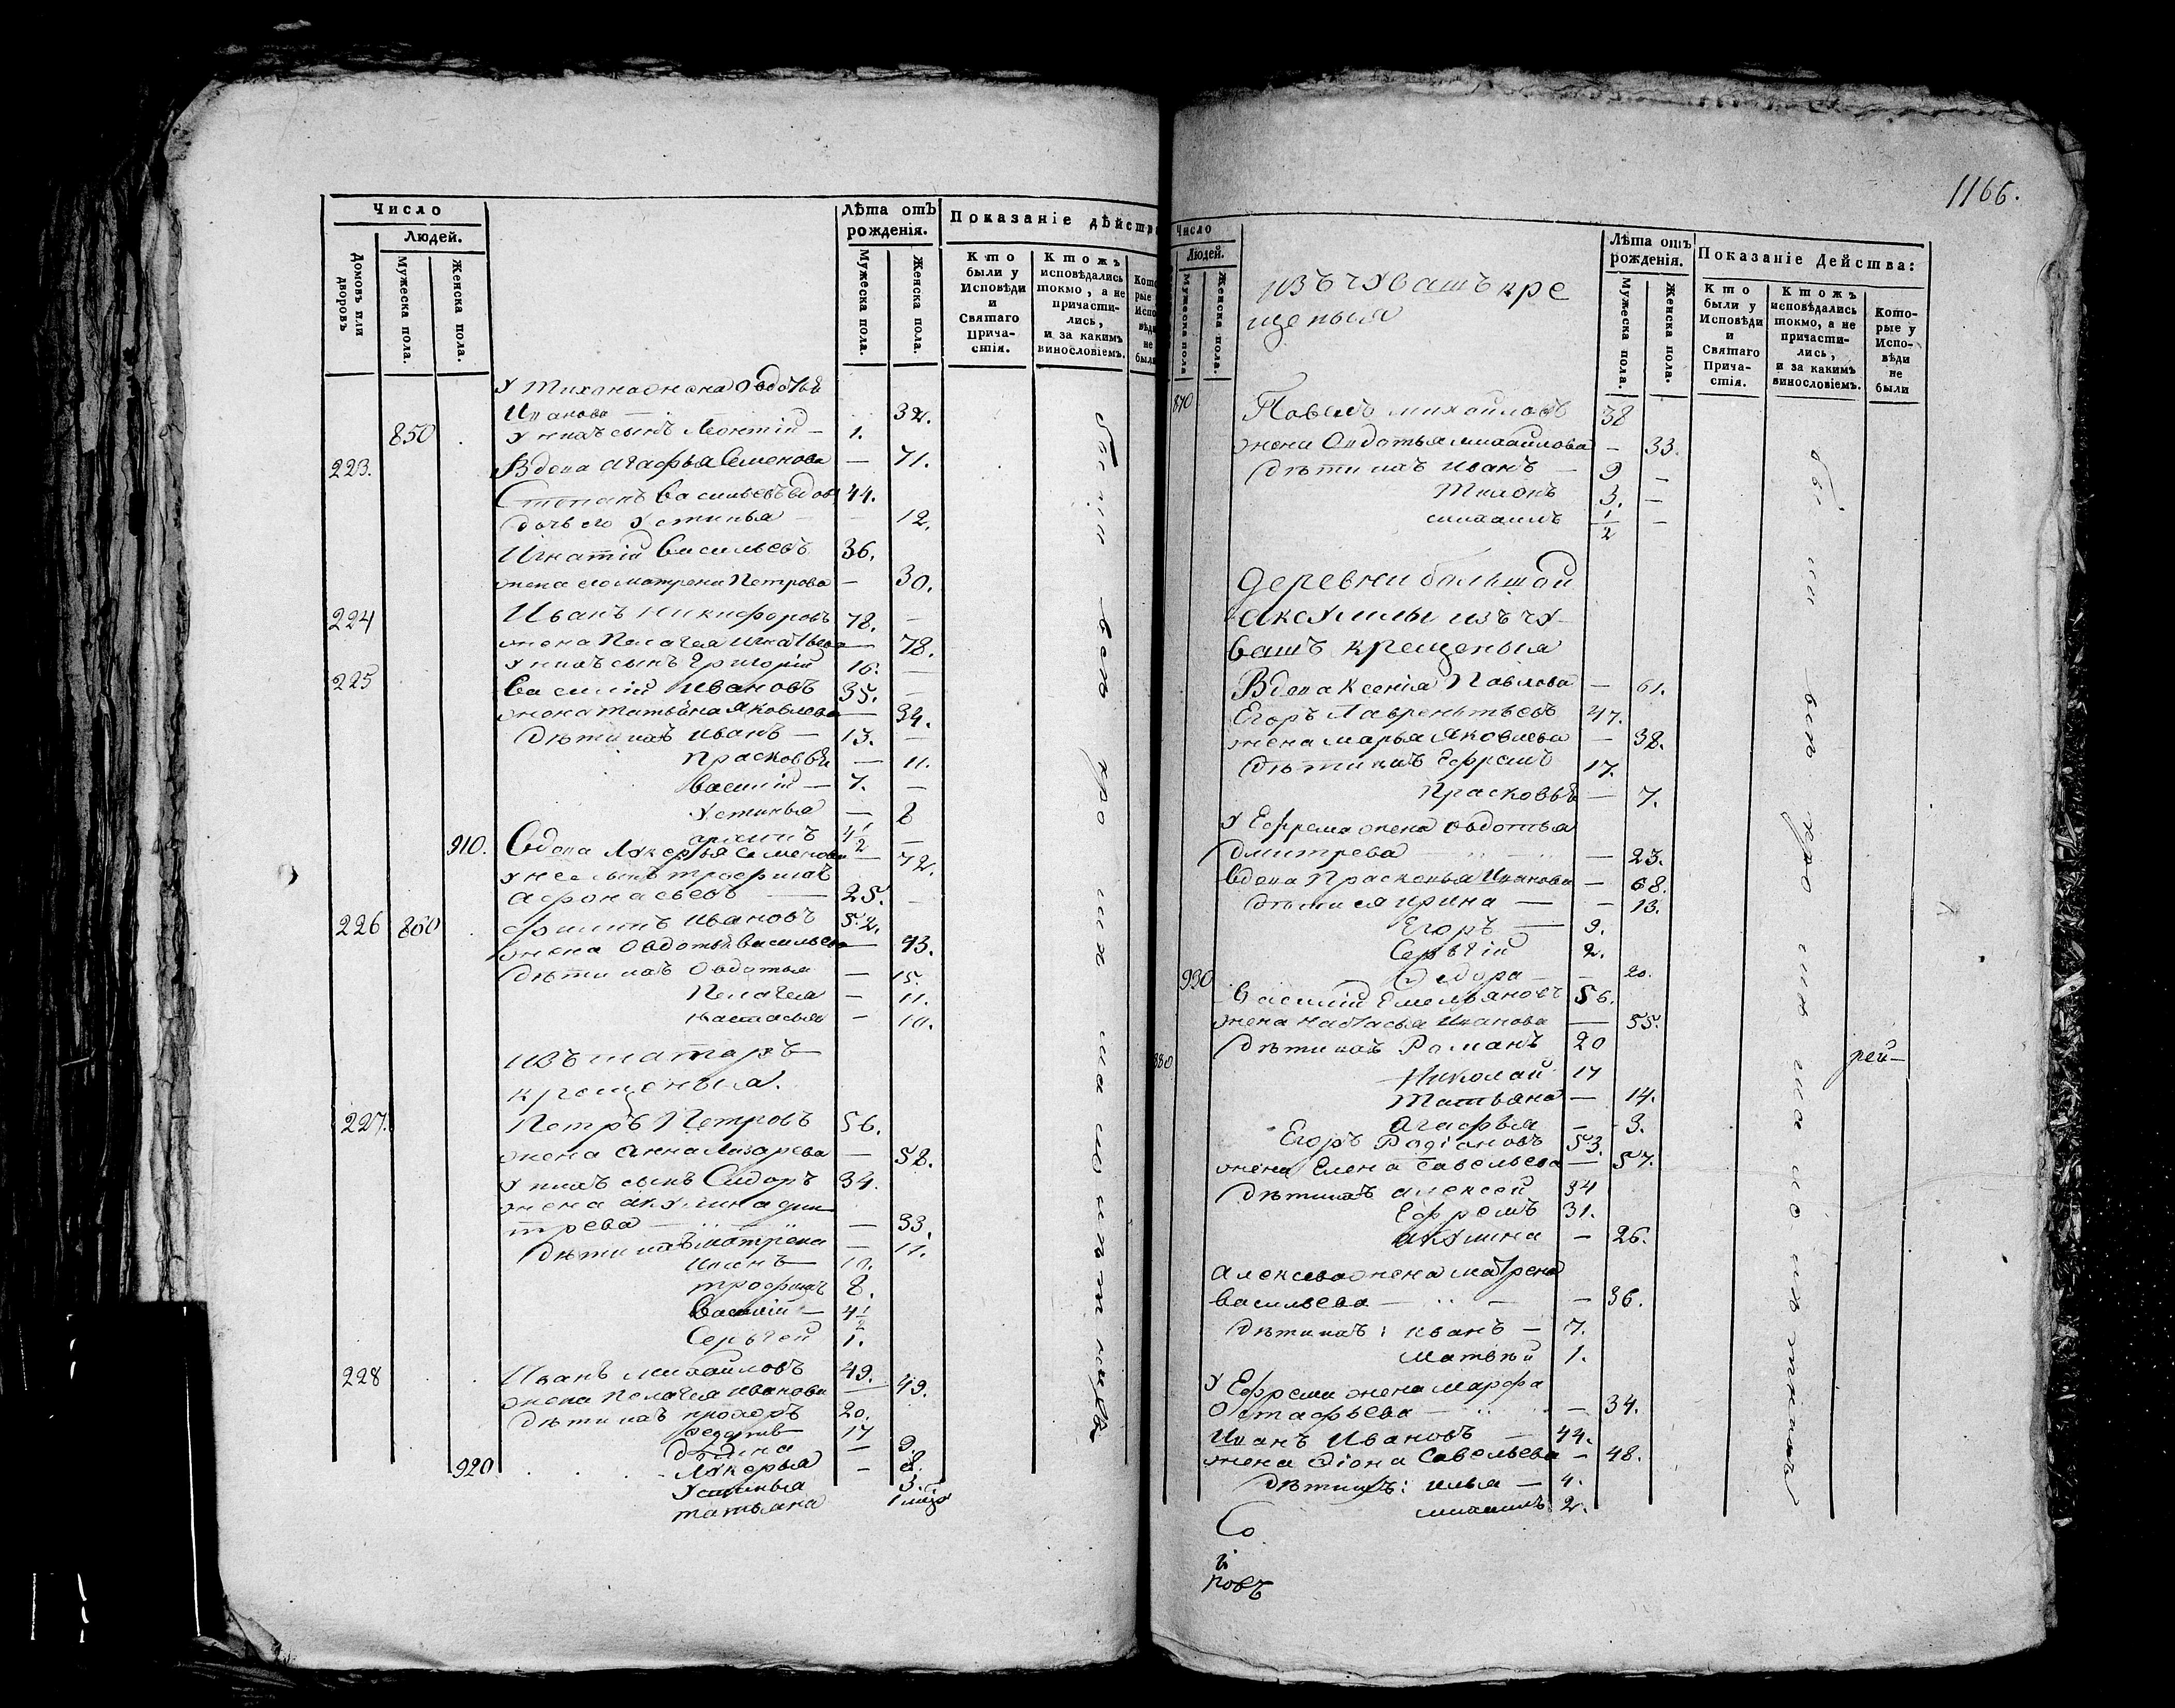 Число
Людей.
Домовъ или дворовъ
Мужеска пола.
Женска пола.
Лѣта отъ рожденія.
Мужеска пола.
Женска пола.
Показаніе дѣйств
Кто были у Исповѣди и Святаго Прича-стія.
Ктожъ исповѣдались токмо, а не причасти-лись, и за какимъ винословіемъ.
У Тихона жена Овдотья
Иванова — 32.
850 У нихъ сынъ Леонтій — 1.
223. Вдова Агафья Семенова — 71.
Степанъ Васильевъ вдов 44.
дочь его Устинья — 12.
Игнатій Васильевъ 36.
жена его Матрена Петрова — 30.
224 Иванъ Никифоровъ 78. —
жена Пелагея Игнатьева — 78.
У нихъ сынъ Григорій 16. —
225 Василій Ивановъ 35. —
жена Татьяна Яковлева — 34.
дѣти ихъ Иванъ — 13. —
Прасковья — 11.
Василій — 7. —
Устинья — 8
Архипъ 4 1/2 —
910. Вдова Лукерья Семенова — 72.
у нее сынъ Трофимъ
Афонасьевъ — 25. —
226 860 Филипъ Ивановъ 52.
жена Овдотья Васильева — 43.
дѣти ихъ Овдотья — 15.
Пелагея — 11.
Настасья — 10.
изъ татаръ
крещеныя.
227. Петръ Петровъ 56.
жена Анна Лазарева — 58.
У нихъ сынъ Сидоръ 34.
жена Акулина Дми
трева — 33.
дѣти ихъ Матрена — 11.
Иванъ — 10.
Трофимъ 8.
Василій — 4 1/2
Сергей 1.
228 Иванъ Михайловъ 49.
жена Пелагея Иванова — 49.
дѣти ихъ Прохоръ 20.
17
— 9.
920 Лукерья — 8.
Устинья 3.
Татьяна
были всѣ кро ихъ ма лолѣтних
1166.
Число
Людей.
Мужеска пола
Женска пола.
Лѣта отъ рожденія.
Мужеска пола.
Женска пола.
Показаніе Действа:
Кто были у Исповѣди и Святаго Прича-стія.
Ктожъ исповѣдались токмо, а не причасти-лись, и за какимъ винословіемъ.
Кото-рые у Испо-вѣди не были
изъ чувашъ кре
щеныя
870 Павелъ Михайловъ 38
жена Овдотья Михайлова — 33.
дѣти ихъ Иванъ — 9 —
Тихонъ 3. —
Михаилъ 1/2 —
деревни большой
Аксумлы изъ чу-
вашъ крещеныя
Вдова Ксенія Павлова — 61.
Егоръ Лаврентьевъ 47.
жена Марья Яковлева — 38.
дѣти ихъ Ефремъ 17.
Прасковья — 7.
У Ефрема жена Овдотья
Дмитрева — 23.
вдова Прасковья Иванова — 68.
дѣти ея Ирина — — 13.
Егоръ — 9.
Сергій 2.
930 Федора — — 20.
Василій Емельяновъ 56.
жена Настасья Иванова — 55.
880 дѣти ихъ Романъ 20
Николай 17
Татьяна — 14.
Агафья — 3.
Егоръ Родіоновъ 53.
жена Елена Савельева — 57.
дѣти ихъ Алексей 34
Ефремъ 31.
Акулина — 26.
Алексея жена Матрена
Васильева — — 36.
дѣти ихъ: Иванъ — 7.
Матвѣй 1.
У Ефрема жена Марфа
Остафьева — — 34.
Иванъ Ивановъ — 44.
жена Савельева — 48.
дѣти ихъ: Илья — 4.
Михаилъ 2.
рей—
Со
повъ